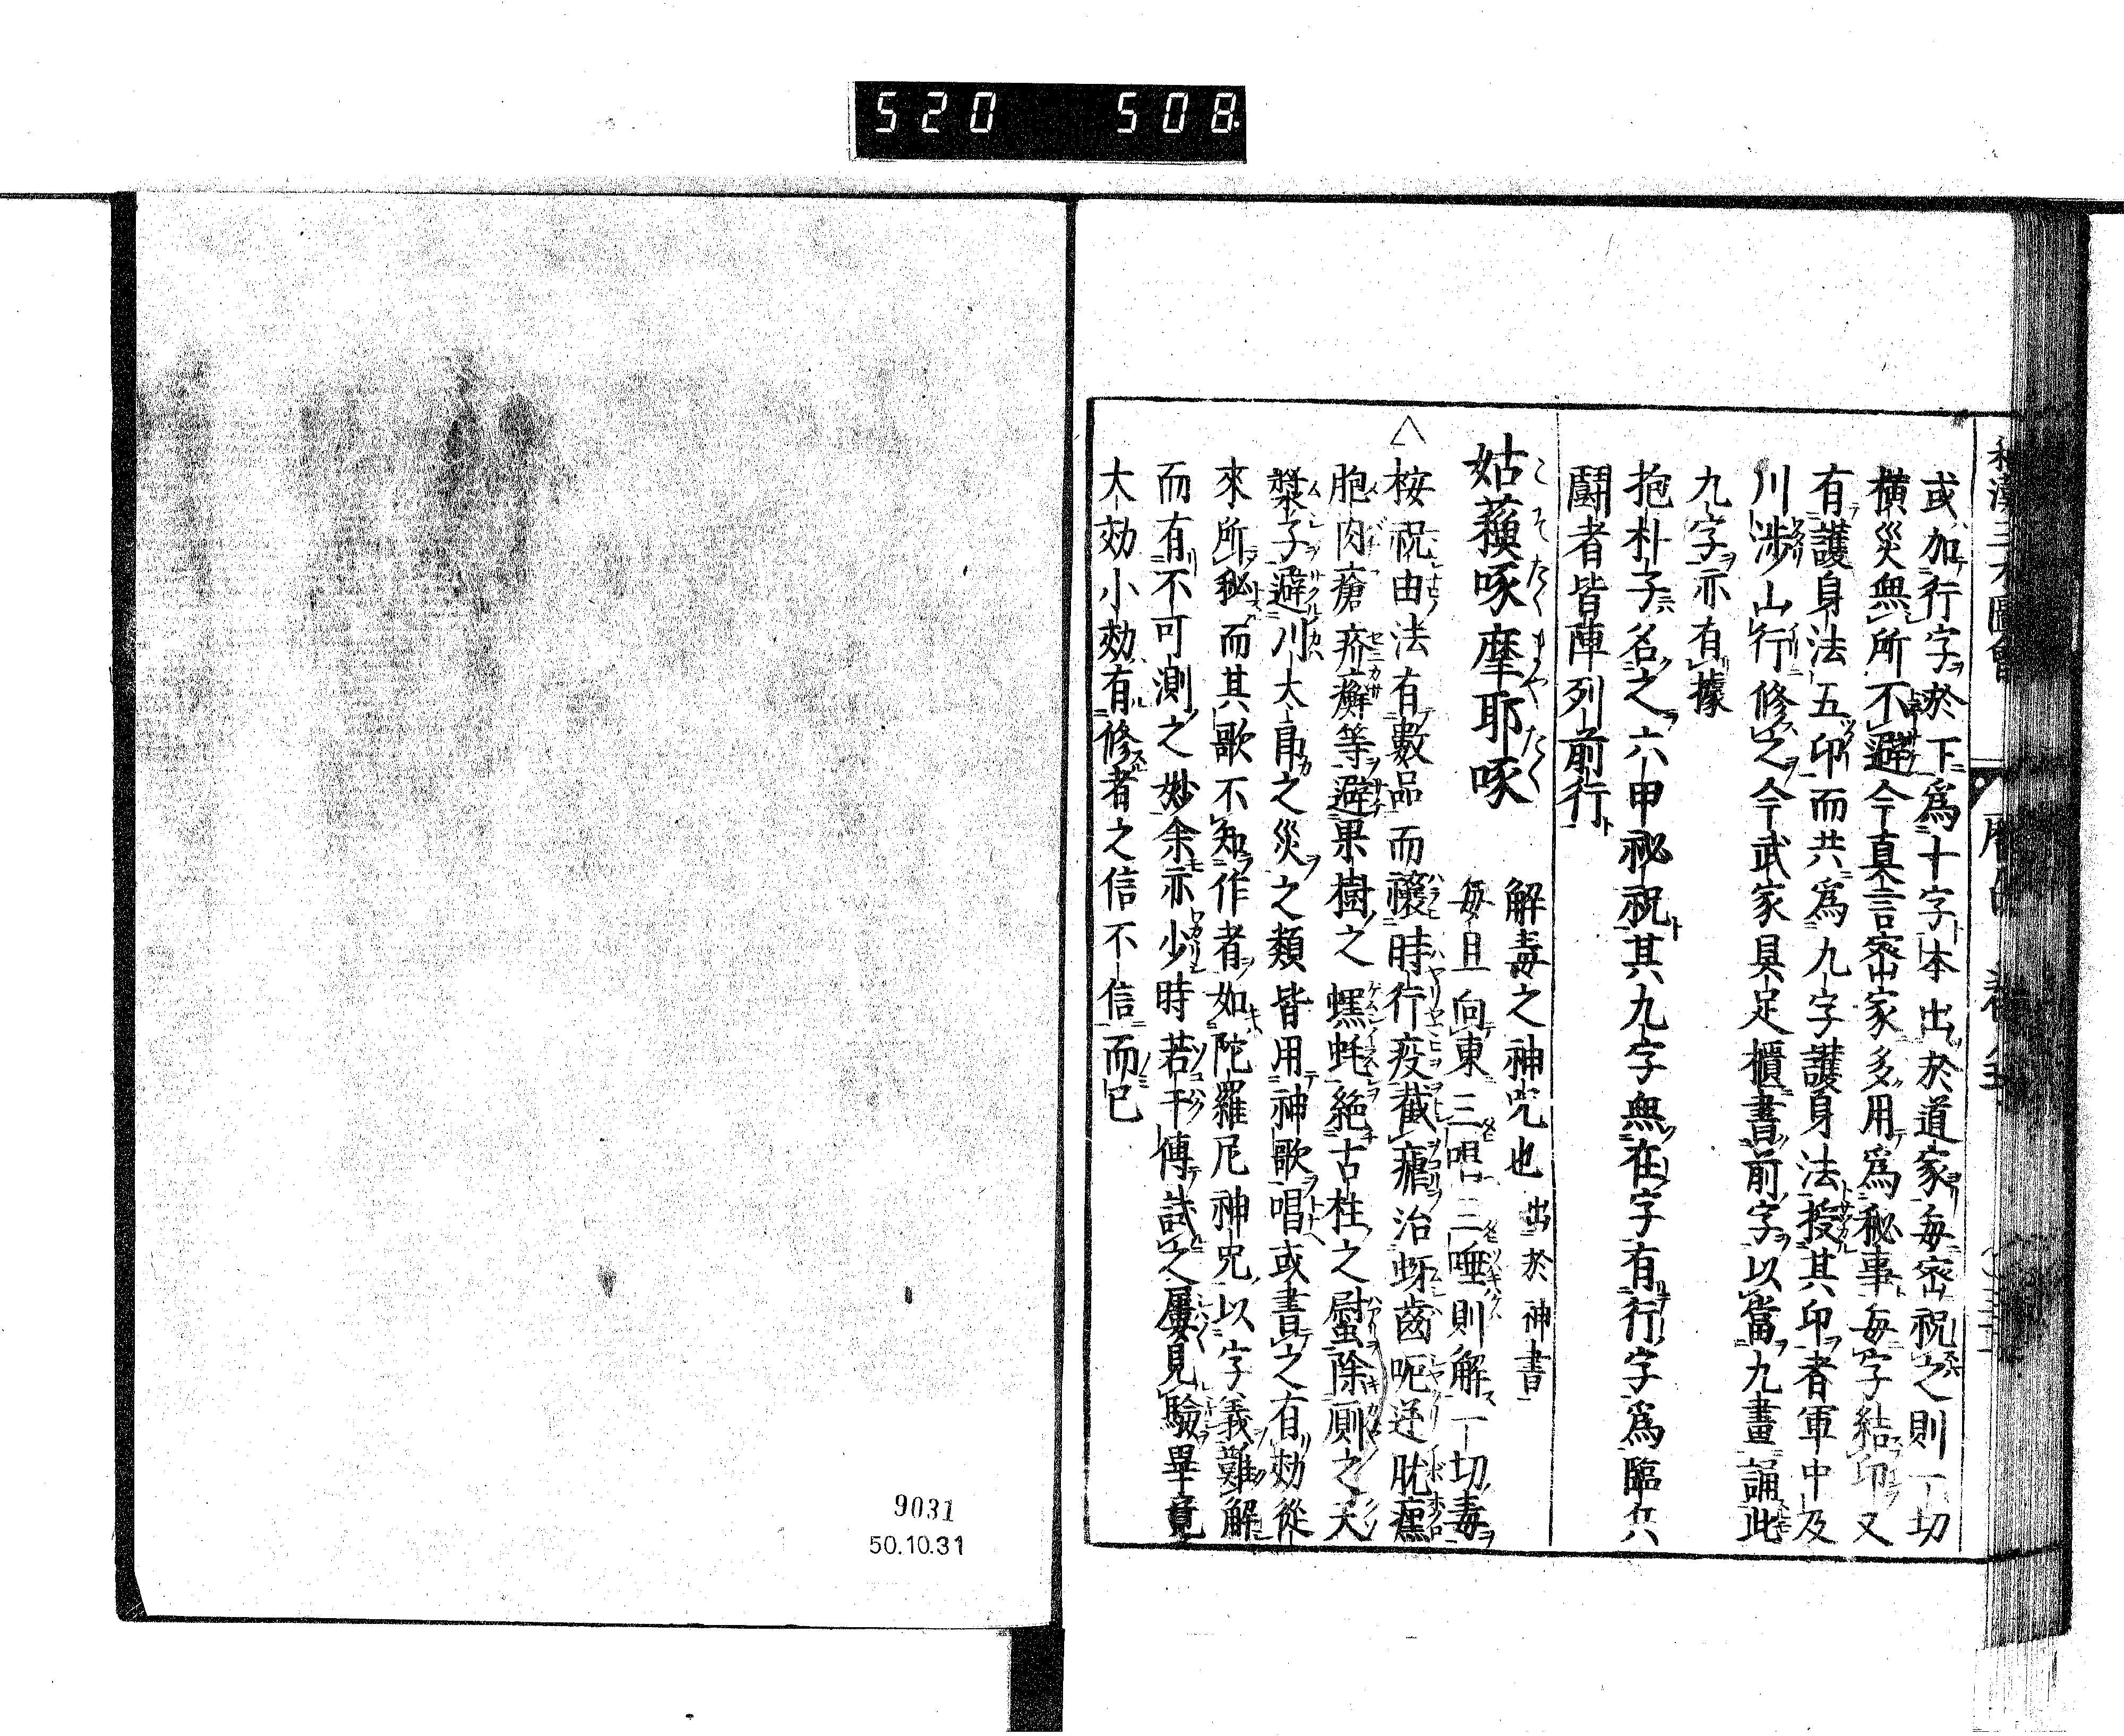 520 508
或加行字於下爲十字本出於道家每密祝之則一切
橫災無所不避今真言密家多用爲秘事每字結印又
有護身法五印而共爲九字護身法授其印者軍中及
川渉山行修之今武家具足櫃書前字以當九畫誦此
九字亦有據
抱朴子名之六甲祕祝其九字無在字有行字爲臨兵
鬪者皆陣列前行
姑蘓啄摩耶啄
こそたくまやたく
解毒之神咒也出於神書
每旦向東三唱三唾則解一切毒
△按祝由法有數品而禳時行疫截瘧治蚜齒呃逆肬癦
胞肉瘡疥癬等避果樹之蟔蚝絶古柱之𧓉除厠之天
漿子避川太郎之災之類皆用神歌唱或書之有効從
來所秘而其歌不知作者如陀羅尼神咒以字義難解
而有不可測之妙余亦少時若干傳試之屢見驗畢竟
大効小効有修者之信不信而已
9031
50.10.31